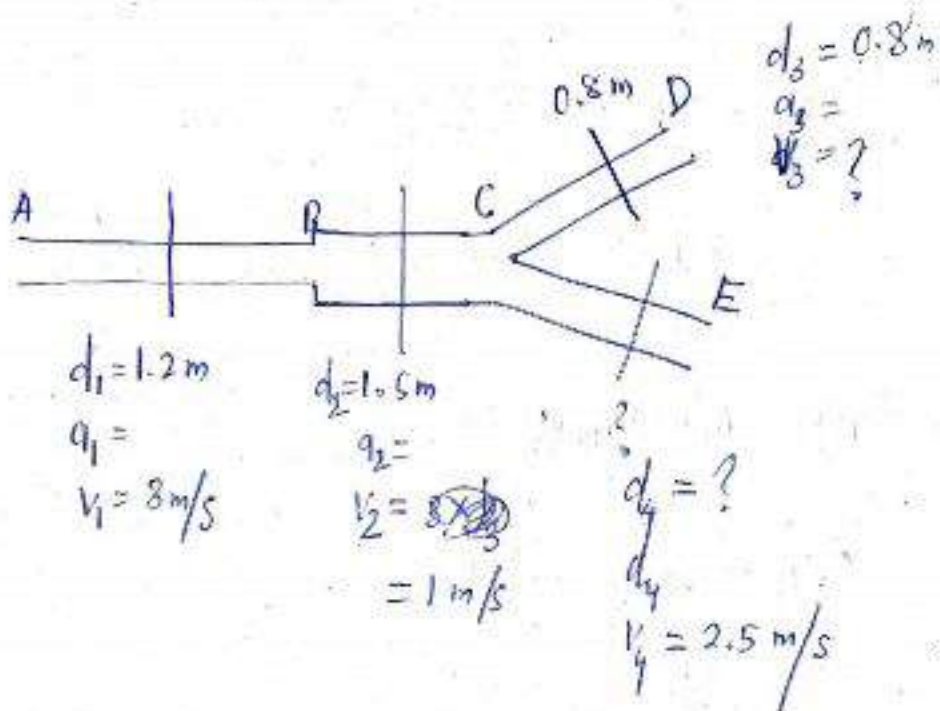 d₃ = 0.8 m
a₃ =
V₃ = ?
0.8 m
D
A
B
C
E
d₁ = 1.2 m
a₁ =
V₁ = 3 m/s
d₂ = 1.5 m
a₂ =
V₂ =
= 1 m/s
?
d₄ = ?
d₄
V₄ = 2.5 m/s